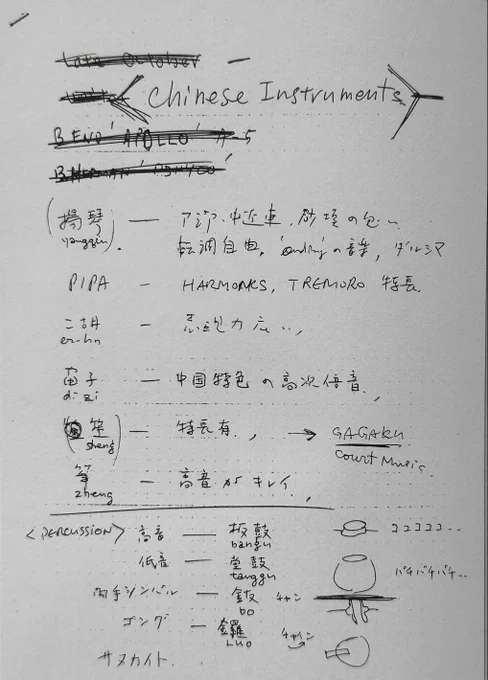 Late October —
Chinese Instruments
BEND 'APOLLO' A-5
(揚琴) — アジア・中近東, 砂漠の匂い
yangqin
転調自由, 'ending'の音楽, ダルシマ
PIPA — HARMONICS, TREMORO 特長.
二胡 — 広い,
er-hu
笛子 — 中国特色の高次倍音,
di zi
(笙) — 特長有, → GAGAKU
sheng
Court Music
筝 — 高音がキレイ,
zheng
<PERCUSSION> 高音 — 板鼓 ココココココ..
bangu
低音 — 堂鼓 バチバチバチ..
tanggu
両手シンバル — 鈸 チャン
bo
ゴング — 鑼 チャイン
Luo
サヌカイト.